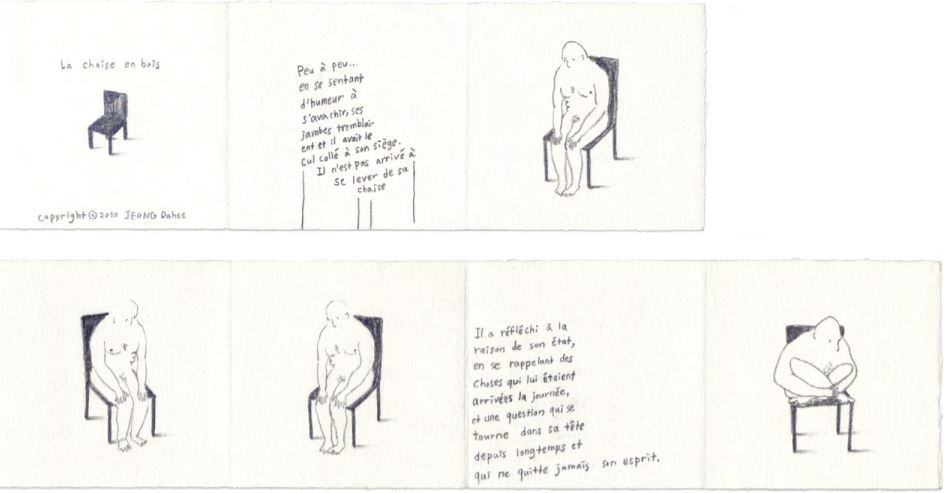 La chaise en bois
Copyright © 2010 JEONG Dahee
Peu à peu...
en se sentant
d'humeur à
s'avachir, ses
jambes tremblai-
ent et il avait le
cul collé à son siège.
Il n'est pas arrivé à
se lever de sa
chaise
Il a réfléchi à la
raison de son état,
en se rappelant des
choses qui lui étaient
arrivées la journée,
et une question qui se
tourne dans sa tête
depuis longtemps et
qui ne quitte jamais son esprit.